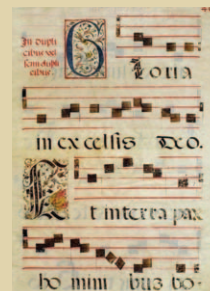 In dupli
cibus vel
semidupli
cibus.
Gloria
in excelsis Deo.
Et in terra pax
homini bus bo-